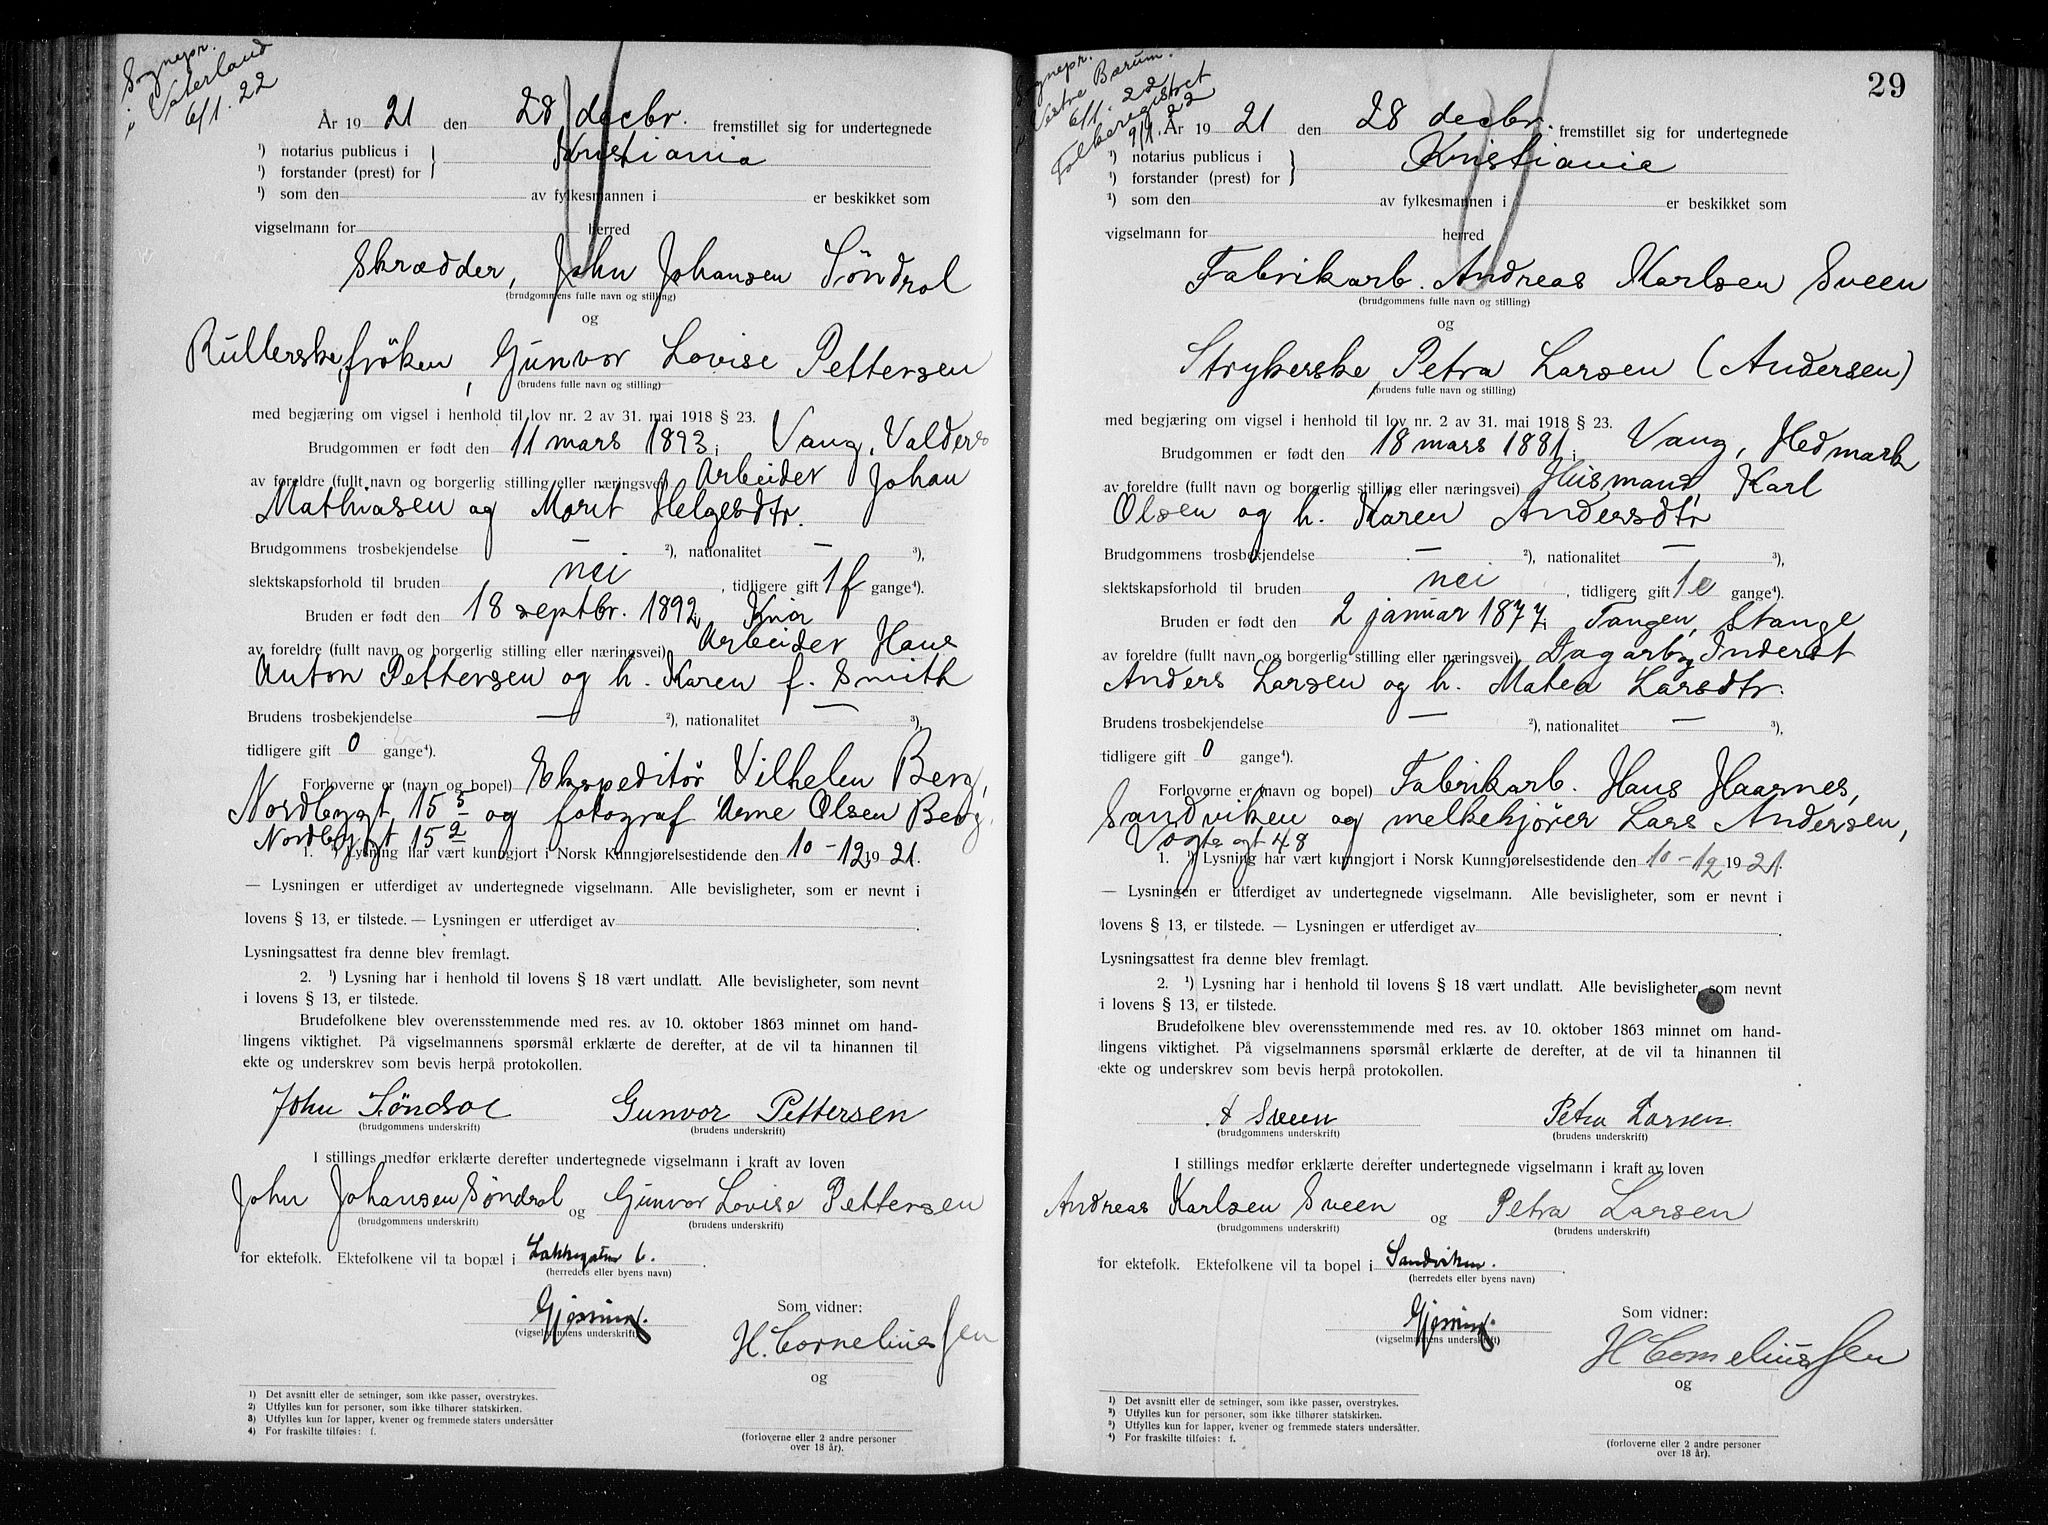 Sognepr.
i Vaterland
6/1. 22
År 1921 den 28 decbr. fremstillet sig for undertegnede
¹) notarius publicus i
¹) forstander (prest) for } Kristiania
¹) som den av fylkesmannen i er beskikket som
vigselmann for herred
Skrædder, John Johansen Söndrol
(brudgommens fulle navn og stilling)
og
Rullerske, fröken, Gunvor Lovise Pettersen
(brudens fulle navn og stilling)
med begjæring om vigsel i henhold til lov nr. 2 av 31. mai 1918 § 23.
Brudgommen er født den 11 mars 1893 i Vang, Valders
av foreldre (fullt navn og borgerlig stilling eller næringsvei) Arbeider Johan
Mathiasen og Marit Helgesdtr.
Brudgommens trosbekjendelse — ²), nationalitet — ³),
slektskapsforhold til bruden nei, tidligere gift 1 f gange⁴).
Bruden er født den 18 septbr. 1892 i Kria
av foreldre (fullt navn og borgerlig stilling eller næringsvei) Arbeider Hans
Anton Pettersen og h. Karen f. Smith
Brudens trosbekjendelse — ²), nationalitet — ³),
tidligere gift 0 gange⁴).
Forloverne er (navn og bopel) Ekspeditör Vilhelm Berg,
Nordbygt. 15 5 og fotograf Arne Olsen Berg,
Nordbygt 15 2
1. ¹) Lysning har vært kunngjort i Norsk Kunngjørelsestidende den 10-12 1921.
— Lysningen er utferdiget av undertegnede vigselmann. Alle bevisligheter, som er nevnt i
lovens § 13, er tilstede. — Lysningen er utferdiget av
Lysningsattest fra denne blev fremlagt.
2. ¹) Lysning har i henhold til lovens § 18 vært undlatt. Alle bevisligheter, som nevnt
i lovens § 13, er tilstede.
Brudefolkene blev overensstemmende med res. av 10. oktober 1863 minnet om hand-
lingens viktighet. På vigselmannens spørsmål erklærte de derefter, at de vil ta hinannen til
ekte og underskrev som bevis herpå protokollen.
John Söndrol Gunvor Pettersen
(brudgommens underskrift) (brudens underskrift)
I stillings medfør erklærte derefter undertegnede vigselmann i kraft av loven
John Johansen Söndrol og Gunvor Lovise Pettersen
(brudgommens underskrift) (brudens underskrift)
for ektefolk. Ektefolkene vil ta bopæl i Lakkegaten 6.
(herredets eller byens navn)
Gjessing.
(vigselmannens underskrift)
Som vidner:
H. Corneliussen
og
(forloverne eller 2 andre personer
over 18 år).
1) Det avsnitt eller de setninger, som ikke passer, overstrykes.
2) Utfylles kun for personer, som ikke tilhører statskirken.
3) Utfylles kun for lapper, kvener og fremmede staters undersåtter
4) For fraskilte tilføies: f.
29
Sognepr.
i Vestre Bærum.
6/1. 22
Folkeregistret
9/1. 22
År 1921 den 28 decbr. fremstillet sig for undertegnede
¹) notarius publicus i
¹) forstander (prest) for } Kristiania
¹) som den av fylkesmannen i er beskikket som
vigselmann for herred
Fabrikarb. Andreas Karlsen Sveen
(brudgommens fulle navn og stilling)
og
Strykerske Petra Larsen (Andersen)
(brudens fulle navn og stilling)
med begjæring om vigsel i henhold til lov nr. 2 av 31. mai 1918 § 23.
Brudgommen er født den 18 mars 1881 i Vang, Hedmark
av foreldre (fullt navn og borgerlig stilling eller næringsvei) Husmand Karl
Olsen og h. Karen Andersdtr
Brudgommens trosbekjendelse — ²), nationalitet — ³),
slektskapsforhold til bruden nei, tidligere gift 1 e gange⁴).
Bruden er født den 2 januar 1877 i Tangen, Stange
av foreldre (fullt navn og borgerlig stilling eller næringsvei) Dagarb og Inderst
Anders Larsen og h. Matea Larsdtr.
Brudens trosbekjendelse — ²), nationalitet — ³),
tidligere gift 0 gange⁴).
Forloverne er (navn og bopel) Fabrikarb. Hans Haarnes,
Sandviken og melkekjører Lars Andersen,
Vogts gt 48
1. ¹) Lysning har vært kunngjort i Norsk Kunngjørelsestidende den 10-12 1921.
— Lysningen er utferdiget av undertegnede vigselmann. Alle bevisligheter, som er nevnt i
lovens § 13, er tilstede. — Lysningen er utferdiget av
Lysningsattest fra denne blev fremlagt.
2. ¹) Lysning har i henhold til lovens § 18 vært undlatt. Alle bevisligheter, som nevnt
i lovens § 13, er tilstede.
Brudefolkene blev overensstemmende med res. av 10. oktober 1863 minnet om hand-
lingens viktighet. På vigselmannens spørsmål erklærte de derefter, at de vil ta hinannen til
ekte og underskrev som bevis herpå protokollen.
A Sveen Petra Larsen
(brudgommens underskrift) (brudens underskrift)
I stillings medfør erklærte derefter undertegnede vigselmann i kraft av loven
Andreas Karlsen Sveen og Petra Larsen
(brudgommens underskrift) (brudens underskrift)
for ektefolk. Ektefolkene vil ta bopel i Sandviken.
(herredets eller byens navn)
Gjessing.
(vigselmannens underskrift)
Som vidner:
H Corneliussen
og
(forloverne eller 2 andre personer
over 18 år).
¹) Det avsnitt eller de setninger, som ikke passer, overstrykes.
²) Utfylles kun for personer, som ikke tilhører statskirken.
³) Utfylles kun for lapper, kvener og fremmede staters undersåtter.
⁴) For fraskilte tilføies: f.